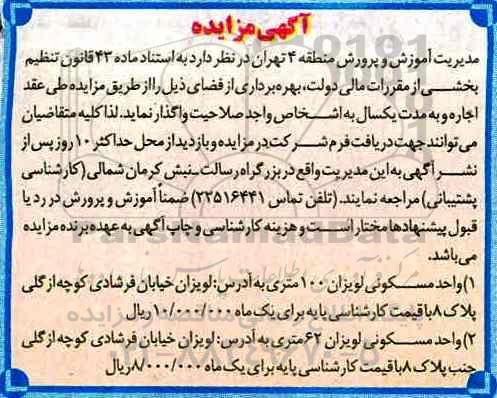 آگهی مزایده
مدیریت آموزش و پرورش منطقه ۴ تهران در نظر دارد به استناد ماده ۴۳ قانون تنظیم
بخشی از مقررات مالی دولت، بهره برداری از فضای ذیل را از طریق مزایده طی عقد
اجاره و به مدت یکسال به اشخاص واجد صلاحیت واگذار نماید. لذا کلیه متقاضیان
می توانند جهت دریافت فرم شرکت در مزایده و بازدید از محل حداکثر ۱۰ روز پس از
نشر آگهی به این مدیریت واقع در بزرگراه رسالت ـ نبش کرمان شمالی (کارشناسی
پشتیبانی) مراجعه نمایند. (تلفن تماس ۲۳۵۱۶۴۴۱) ضمناً آموزش و پرورش در رد یا
قبول پیشنهادها مختار است و هزینه کارشناسی و چاپ آگهی به عهده برنده مزایده
می باشد.
۱) واحد مسکونی لویزان ۱۰۰ متری به آدرس: لویزان خیابان فرشادی کوچه ازگلی
پلاک ۸ با قیمت کارشناسی پایه برای یک ماه ۱۰/۰۰۰/۰۰۰ ریال
۲) واحد مسکونی لویزان ۶۲ متری به آدرس: لویزان خیابان فرشادی کوچه ازگلی
جنب پلاک ۸ با قیمت کارشناسی پایه برای یک ماه ۸/۰۰۰/۰۰۰ ریال
ParsNamadData